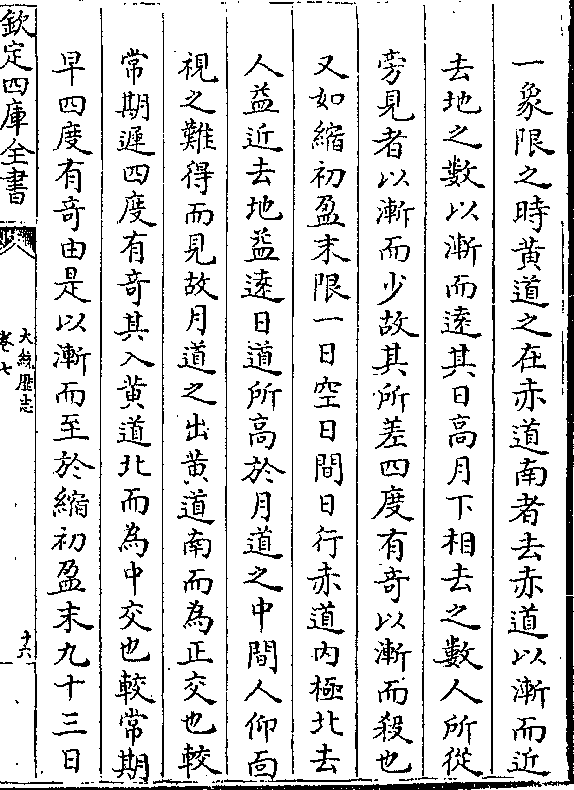 一象限之時黄道之在赤道南者去赤道以漸而近
去地之數以漸而遠其日高月下相去之數人所從
旁見者以漸而少故其所差四度有奇以漸而殺也
又如縮初盈末限一日空日間日行赤道内極北去
人益近去地益遠日道所高於月道之中間人仰面
視之難得而見故月道之出黄道南而為正交也較
常期遲四度有奇其入黄道北而為中交也較常期
早四度有奇由是以漸而至於縮初盈末九十三日
欽定四庫全書
大統歴志
卷七
十六